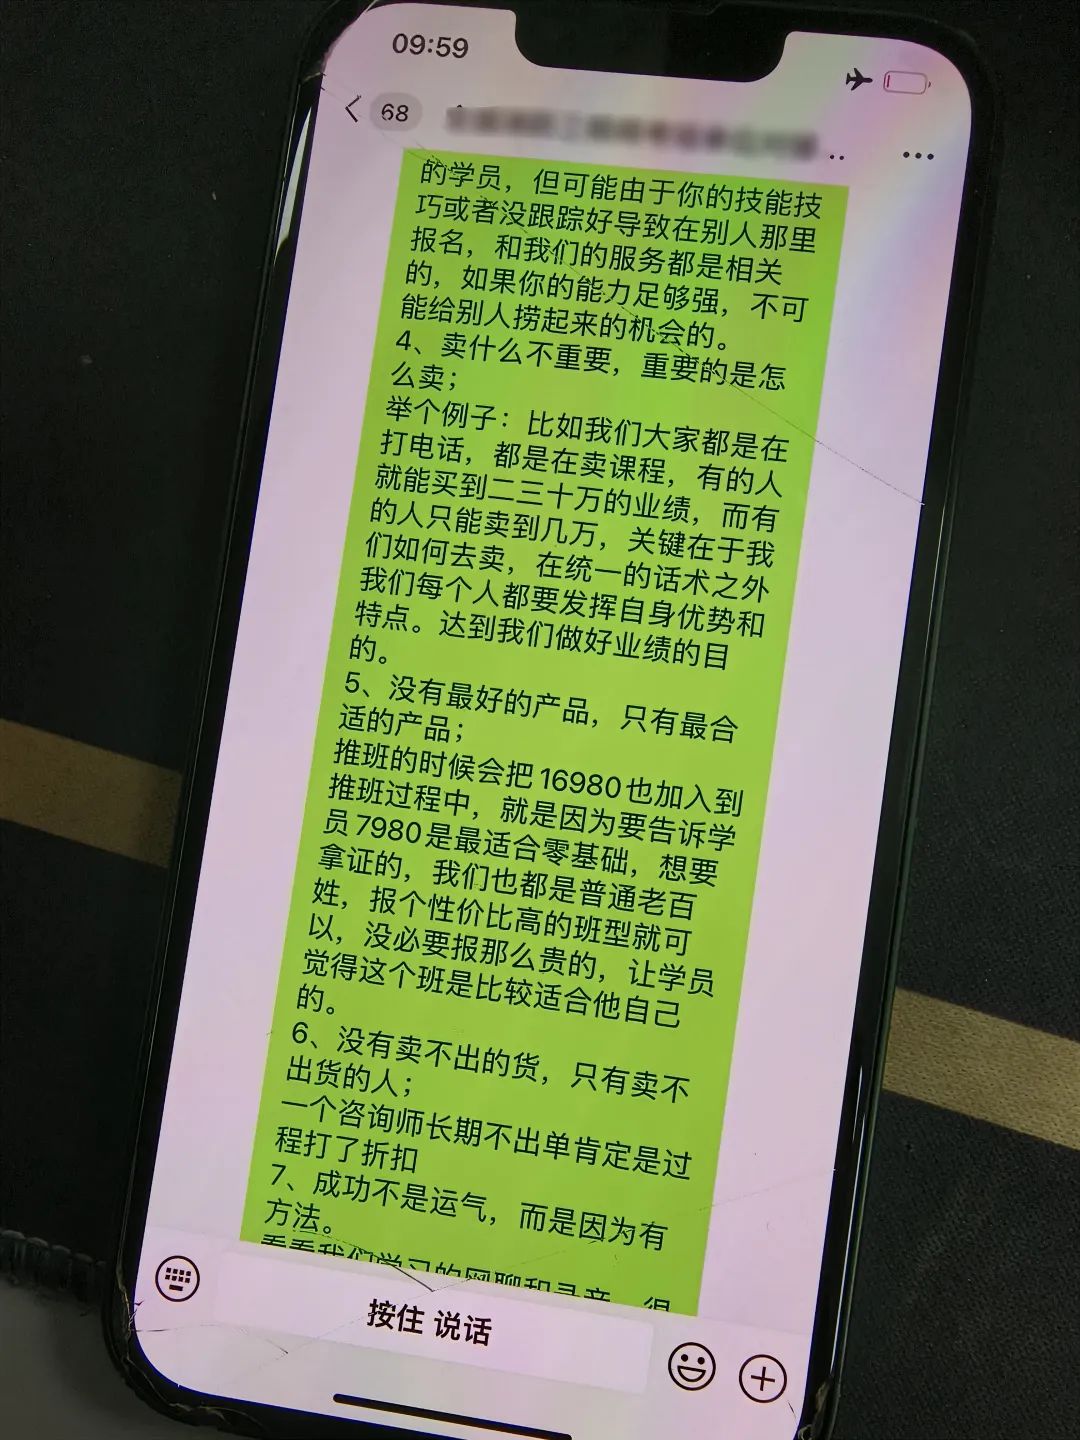 09:59
68
的学员，但可能由于你的技能技
巧或者没跟踪好导致在别人那里
报名，和我们的服务都是相关
的，如果你的能力足够强，不可
能给别人捞起来的机会的。
4、卖什么不重要，重要的是怎
么卖；
举个例子：比如我们大家都是在
打电话，都是在卖课程，有的人
就能买到二三十万的业绩，而有
的人只能卖到几万，关键在于我
们如何去卖，在统一的话术之外
我们每个人都要发挥自身优势和
特点。达到我们做好业绩的目
的。
5、没有最好的产品，只有最合
适的产品；
推班的时候会把16980也加入到
推班过程中，就是因为要告诉学
员7980是最适合零基础，想要
拿证的，我们也都是普通老百
姓，报个性价比高的班型就可
以，没必要报那么贵的，让学员
觉得这个班是比较适合他自己
的。
6、没有卖不出的货，只有卖不
出货的人；
一个咨询师长期不出单肯定是过
程打了折扣
7、成功不是运气，而是因为有
方法。
看看我们学习的网聊和录音，很
按住 说话